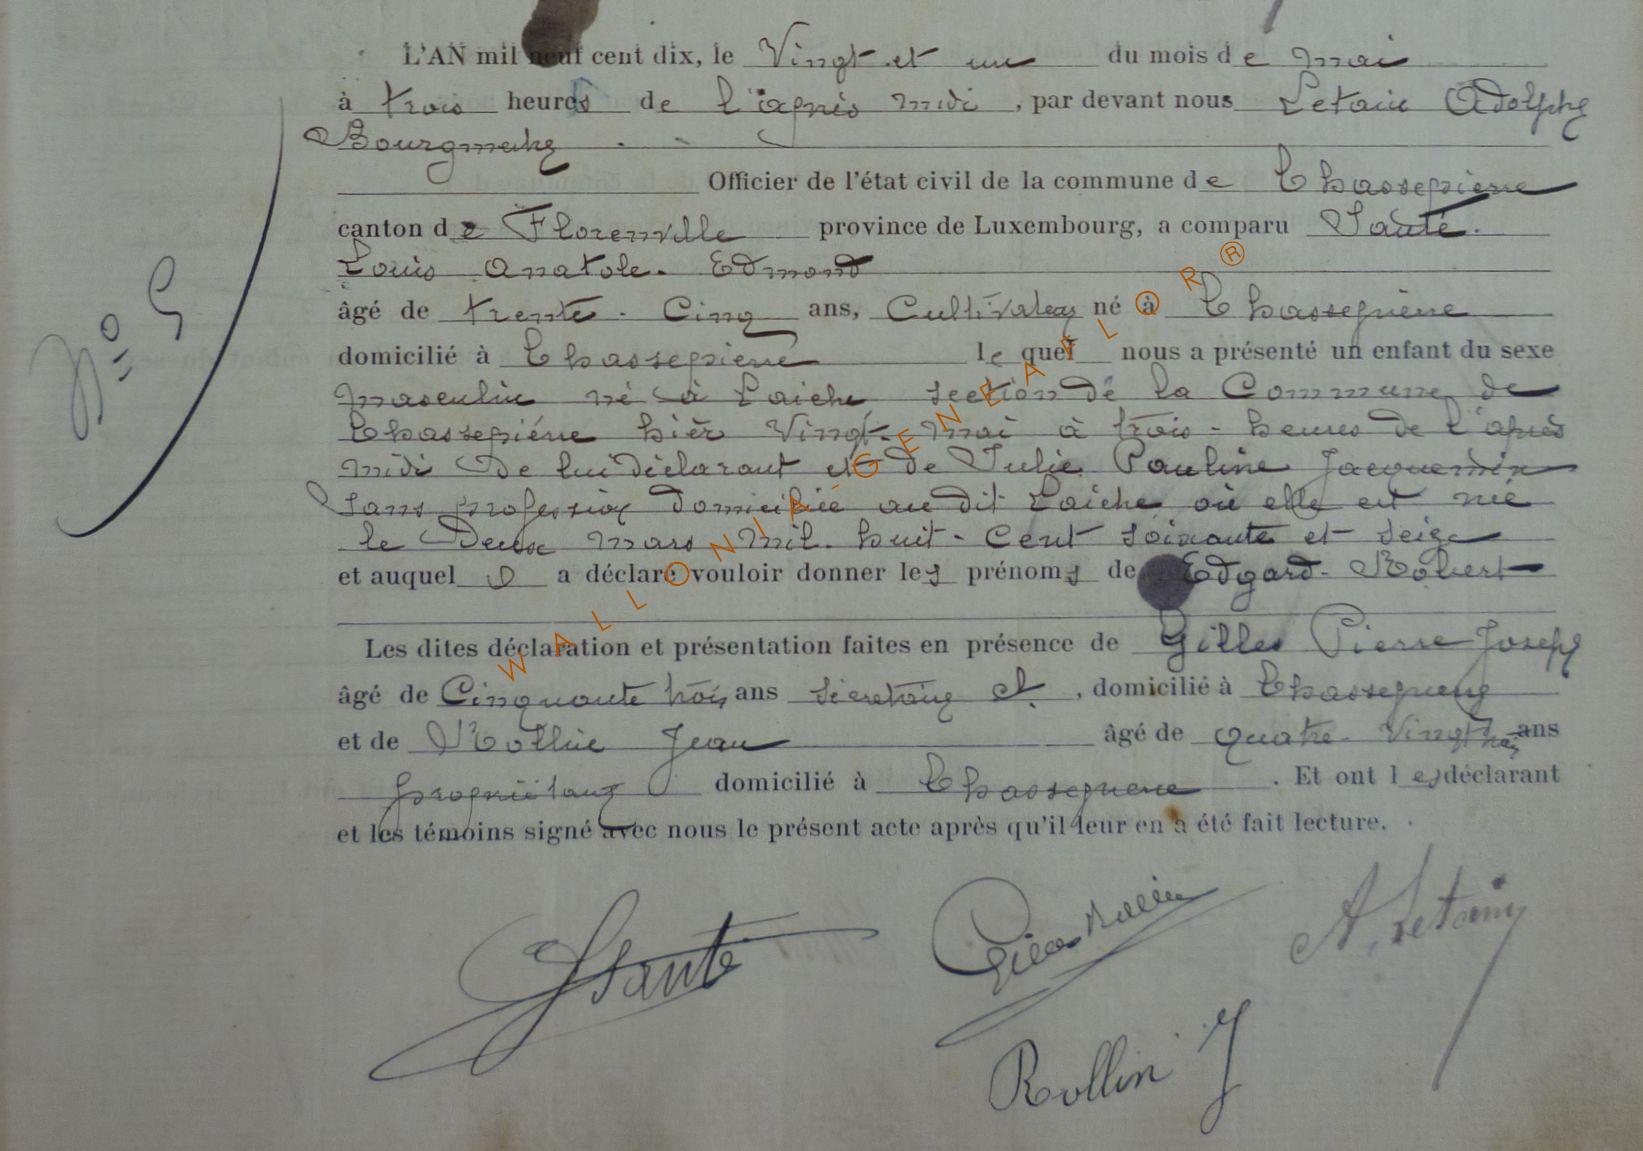 L'AN mil neuf cent dix, le Vingt et un du mois de mai
à trois heures de l'après midi, par devant nous Letain Adolphe
Bourgmestre
Officier de l'état civil de la commune de Chassepierre
canton de Florenville province de Luxembourg, a comparu Santé.
Louis Anatole. Edmond
N° 5
âgé de trente. Cinq ans, Cultivateur né à Chassepierre
domicilié à Chassepierre lequel nous a présenté un enfant du sexe
masculin né à Laiche section de la Commune de
Chassepierre hièr Vingt. mai à trois - heures de l'après
midi De lui déclarant et de Julie Pauline Jacquemin
sans profession domiciliée au dit Laiche où elle est née
le Deux mars mil. huit. Cent soixante et seize
et auquel il a déclaré vouloir donner les prénoms de Edgard. Robert
Les dites déclaration et présentation faites en présence de Gilles Pierre Joseph
âgé de Cinquante trois ans secretaire Cl., domicilié à Chassepierre
et de Rollin Jean âgé de quatre Vingt trois ans
propriétaire domicilié à Chassepierre. Et ont les déclarant
et les témoins signé avec nous le présent acte après qu'il leur en a été fait lecture.
Santé
Gilles Rollin
A. Letain
Rollin J
WALLONIA-GENEALOR®